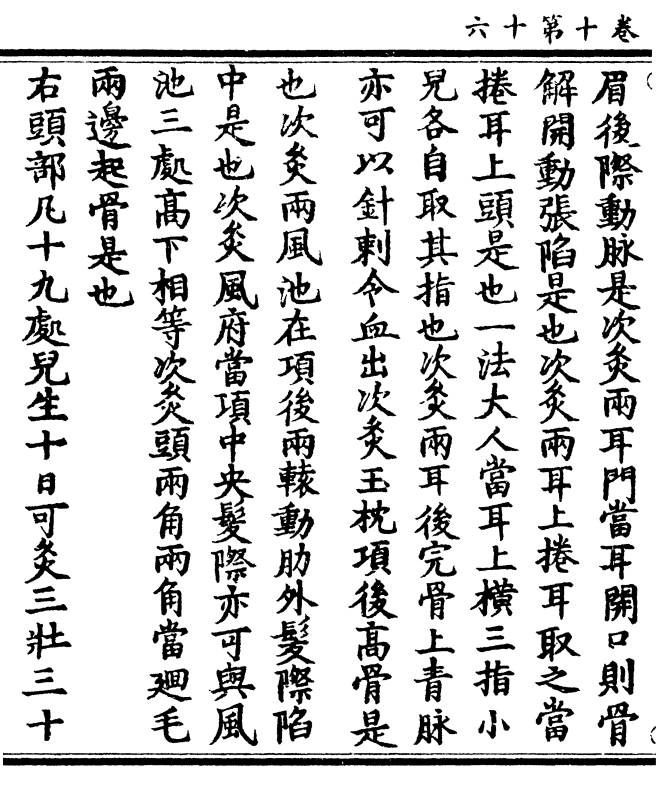 卷十第十六
眉後際動脉是次灸兩耳門當耳開口則骨
解開動張陷是也次灸兩耳上捲耳取之當
捲耳上頭是也一法大人當耳上橫三指小
兒各自取其指也次灸兩耳後完骨上青脉
亦可以針刺令血出次灸玉枕項後高骨是
也次灸兩風池在項後兩轅動肋外髮際陷
中是也次灸風府當項中央髮際亦可與風
池三處高下相等次灸頭兩角兩角當廻毛
兩邊起骨是也
右頭部凡十九處兒生十日可灸三壯三十